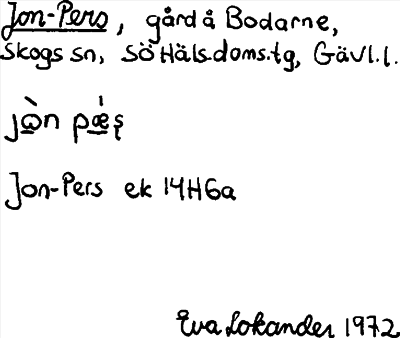 Jon-Pers, gård å Bodarne,
Skogs sn, SöHäls.doms.tg, Gävl.l.
jὼ̱n pǽ̱ʂ
Jon-Pers ek 14H6a
Eva Lokander 1972